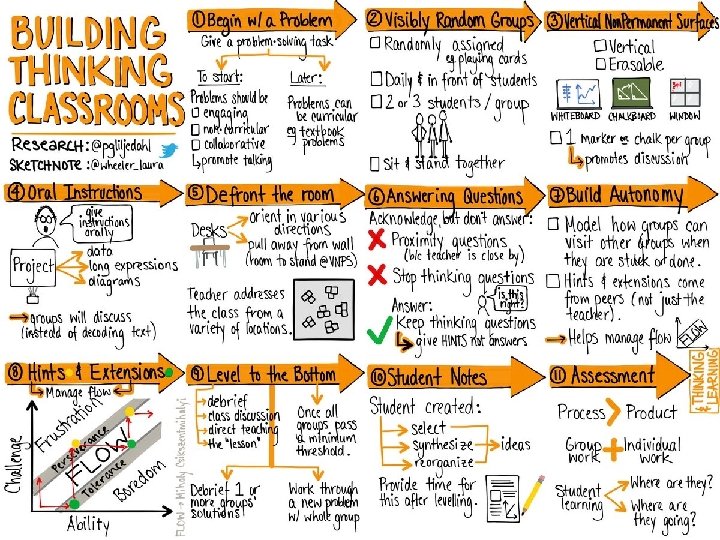 BUILDING
THINKING
CLASSROOMS
RESEARCH: @pgliljedahl
SKETCHNOTE: @wheeler_laura
① Begin w/ a Problem
Give a problem-solving task
To start:
Problems should be
engaging
non-curricular
collaborative
promote talking
Later:
Problems can
be curricular
eg textbook
problems
② Visibly Random Groups
Randomly assigned
eg playing cards
Daily & in front of students
2 or 3 students / group
Sit & Stand together
③ Vertical NonPermanent Surfaces
Vertical
Erasable
WHITEBOARD CHALKBOARD WINDOW
1 marker or chalk per group
promotes discussion
④ Oral Instructions
give
instructions
orally
Project
data
long expressions
diagrams
groups will discuss
(instead of decoding text)
⑤ Defront the room
Desks
orient in various
directions
pull away from wall
(room to stand @VNPS)
Teacher addresses
the class from a
variety of locations.
⑥ Answering Questions
Acknowledge, but don't answer:
Proximity questions
(b/c teacher is close by)
Stop thinking questions
is this
right?
Answer:
Keep thinking questions
give HINTS not answers
⑦ Build Autonomy
Model how groups can
visit other groups when
they are stuck or done.
Hints & extensions come
from peers (not just the
teacher).
Helps manage flow
FLOW
⑧ Hints & Extensions
Manage flow
Challenge
Frustration
Perseverance
FLOW
Tolerance
Boredom
Ability
FLOW → Mihaly Csikszentmihalyi
⑨ Level to the Bottom
debrief
class discussion
direct teaching
the "lesson"
Once all
groups pass
a minimum
threshold.
Debrief 1 or
more groups'
solutions
Work through
a new problem
w/ whole group
⑩ Student Notes
Student created:
select
synthesize
reorganize
ideas
Provide time for
this after levelling.
⑪ Assessment
THINKING
& LEARNING
Process > Product
Group
work
+
Individual
work
Student
learning
Where are they?
Where are
they going?